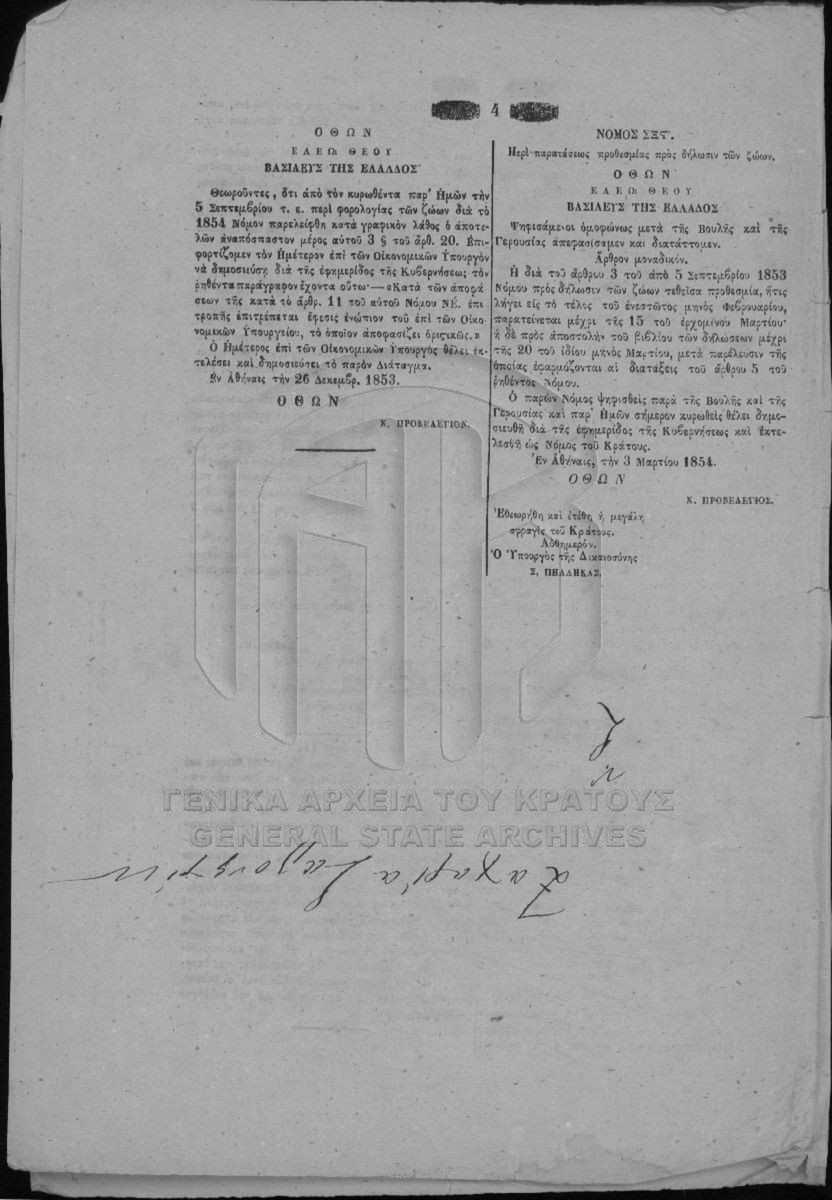 4
Ο Θ Ω Ν
ΕΛΕΩ ΘΕΟΥ
ΒΑΣΙΛΕΥΣ ΤΗΣ ΕΛΛΑΔΟΣ
Θεωροῦντες, ὅτι ἀπὸ τὸν κυρωθέντα παρ' Ἡμῶν τὴν
5 Σεπτεμβρίου τ. ε. περὶ φορολογίας τῶν ζώων διὰ τὸ
1854 Νόμον παρελείφθη κατὰ γραφικὸν λάθος ὁ ἀποτε-
λῶν ἀναπόσπαστον μέρος αὐτοῦ 3 § τοῦ ἀρθ. 20. Ἐπι-
φορτίζομεν τὸν Ἡμέτερον ἐπὶ τῶν Οἰκονομικῶν Ὑπουργὸν
νὰ δημοσιεύσῃ διὰ τῆς ἐφημερίδος τῆς Κυβερνήσεως τὸν
ῥηθέντα παράγραφον ἔχοντα οὕτω·—«Κατὰ τῶν ἀποφά-
σεων τῆς κατὰ τὸ ἀρθρ. 11 τοῦ αὐτοῦ Νόμου ΝΕ. ἐπι
τροπῆς ἐπιτρέπεται ἔφεσις ἐνώπιον τοῦ ἐπὶ τῶν Οἰκο-
νομικῶν Ὑπουργείου, τὸ ὁποῖον ἀποφασίζει ὁριστικῶς.»
Ὁ Ἡμέτερος ἐπὶ τῶν Οἰκονομικῶν Ὑπουργὸς θέλει ἐκ-
τελέσει καὶ δημοσιεύσει τὸ παρὸν Διάταγμα.
Ἐν Ἀθήναις τὴν 26 Δεκεμβρ. 1853.
Ο Θ Ω Ν
Κ. ΠΡΟΒΕΛΕΓΙΟΝ.
ΝΟΜΟΣ ΣΞΣΤ'.
Περὶ παρατάσεως προθεσμίας πρὸς δήλωσιν τῶν ζώων.
Ο Θ Ω Ν
ΕΛΕΩ ΘΕΟΥ
ΒΑΣΙΛΕΥΣ ΤΗΣ ΕΛΛΑΔΟΣ
Ψηφισάμενοι ὁμοφώνως μετὰ τῆς Βουλῆς καὶ τῆς
Γερουσίας ἀπεφασίσαμεν καὶ διατάττομεν.
Ἄρθρον μοναδικόν.
Ἡ διὰ τοῦ ἄρθρου 3 τοῦ ἀπὸ 5 Σεπτεμβρίου 1853
Νόμου πρὸς δήλωσιν τῶν ζώων τεθεῖσα προθεσμία, ἥτις
λήγει εἰς τὸ τέλος τοῦ ἐνεστῶτος μηνὸς Φεβρουαρίου,
παρατείνεται μέχρι τῆς 15 τοῦ ἐρχομένου Μαρτίου·
ἡ δὲ πρὸς ἀποστολὴν τοῦ βιβλίου τῶν δηλώσεων μέχρι
τῆς 20 τοῦ ἰδίου μηνὸς Μαρτίου, μετὰ παρέλευσιν τῆς
ὁποίας ἐφαρμόζονται αἱ διατάξεις τοῦ ἄρθρου 5 τοῦ
ῥηθέντος Νόμου.
Ὁ παρὼν Νόμος ψηφισθεὶς παρὰ τῆς Βουλῆς καὶ τῆς
Γερουσίας καὶ παρ' Ἡμῶν σήμερον κυρωθεὶς θέλει δημο-
σιευθῆ διὰ τῆς ἐφημερίδος τῆς Κυβερνήσεως καὶ ἐκτε-
λεσθῆ ὡς Νόμος τοῦ Κράτους.
Ἐν Ἀθήναις, τὴν 3 Μαρτίου 1854.
Ο Θ Ω Ν
Κ. ΠΡΟΒΕΛΕΓΙΟΣ.
Ἐθεωρήθη καὶ ἐτέθη ἡ μεγάλη
σφραγὶς τοῦ Κράτους.
Αὐθημερόν.
Ὁ Ὑπουργὸς τῆς Δικαιοσύνης
Σ. ΠΗΛΛΗΚΑΣ.
ΓΕΝΙΚΑ ΑΡΧΕΙΑ ΤΟΥ ΚΡΑΤΟΥΣ
GENERAL STATE ARCHIVES